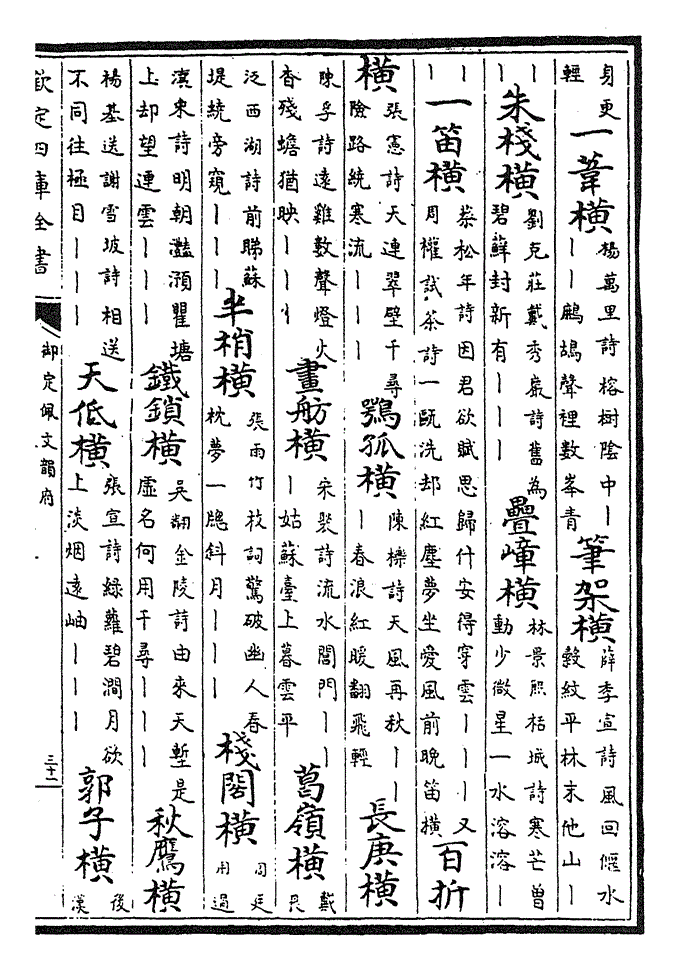 身更
輕
一葦橫
楊萬里詩榕樹陰中丨
丨丨鷓鴣聲裡數峯青
筆架橫
薛季宣詩風回偃水
縠紋平林末他山丨
丨
丨
朱棧橫
劉克莊戴秀巖詩舊為
碧蘚封新有丨丨丨
疊嶂橫
林景熙栝城詩寒芒曾
動少微星一水溶溶丨
丨
丨
一笛橫
蔡松年詩因君欲賦思歸什安得穿雲丨丨丨又
周權試茶詩一甌洗却紅塵夢坐愛風前晚笛橫
百折
橫
張憲詩天連翠壁千尋
險路繞寒流丨丨丨
鶚孤橫
陳櫟詩天風再秋丨丨
丨春浪紅暖翻飛輕
長庚橫
陳孚詩遠雞數聲燈火
杳殘蟾猶映丨丨丨
畫舫橫
宋褧詩流水閶門丨丨
丨姑蘇臺上暮雲平
葛嶺橫
戴
良
泛西湖詩前睇蘇
堤繞旁窺丨丨丨
半梢橫
張雨竹枝詞驚破幽人春
枕夢一牕斜月丨丨丨
棧閣橫
周廷
用過
漢東詩明朝灩澦瞿塘
上却望連雲丨丨丨
鐵鎖橫
吳翮金陵詩由來天塹是
虛名何用千尋丨丨丨
秋鷹橫
楊基送謝雪坡詩相送
不同往極目丨丨丨
天低橫
張宣詩綠蘿碧澗月欲
上淡烟遠岫丨丨丨
郭子橫
後
漢
欽定四庫全書
御定佩文韻府
三十二